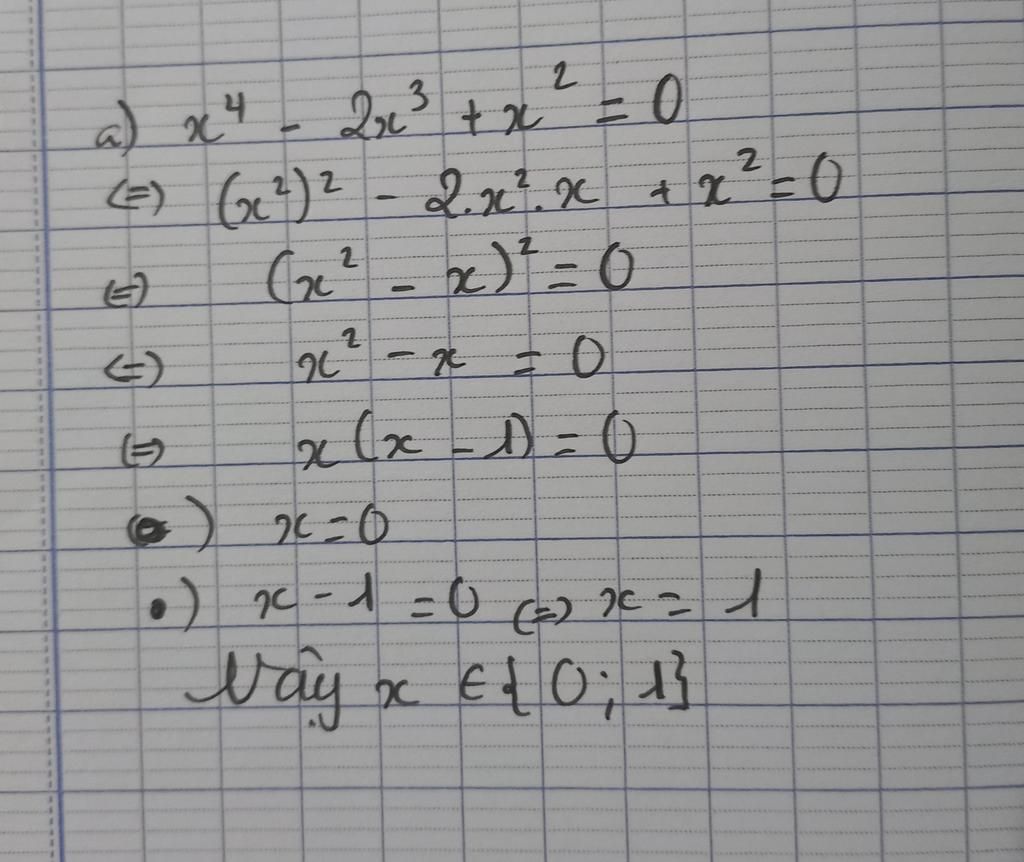 a) x⁴ - 2x³ + x² = 0
(=) (x²)² - 2.x².x + x² = 0
(=) (x² - x)² = 0
(=) x² - x = 0
(=) x(x - 1) = 0
•) x = 0
•) x - 1 = 0 (=) x = 1
Vậy x ∈ {0; 1}